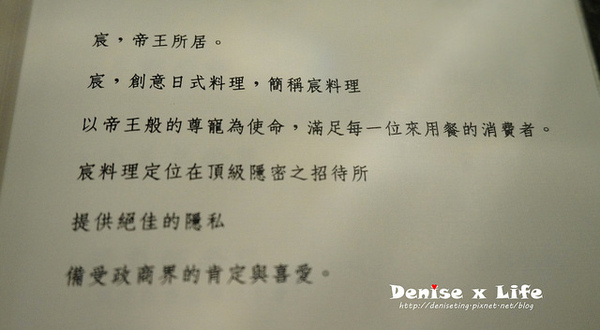 宸，帝王所居。
宸，創意日式料理，簡稱宸料理
以帝王般的尊寵為使命，滿足每一位來用餐的消費者。
宸料理定位在頂級隱密之招待所
提供絕佳的隱私
備受政商界的肯定與喜愛。
Denise x Life
http://deniseting.pixnet.net/blog